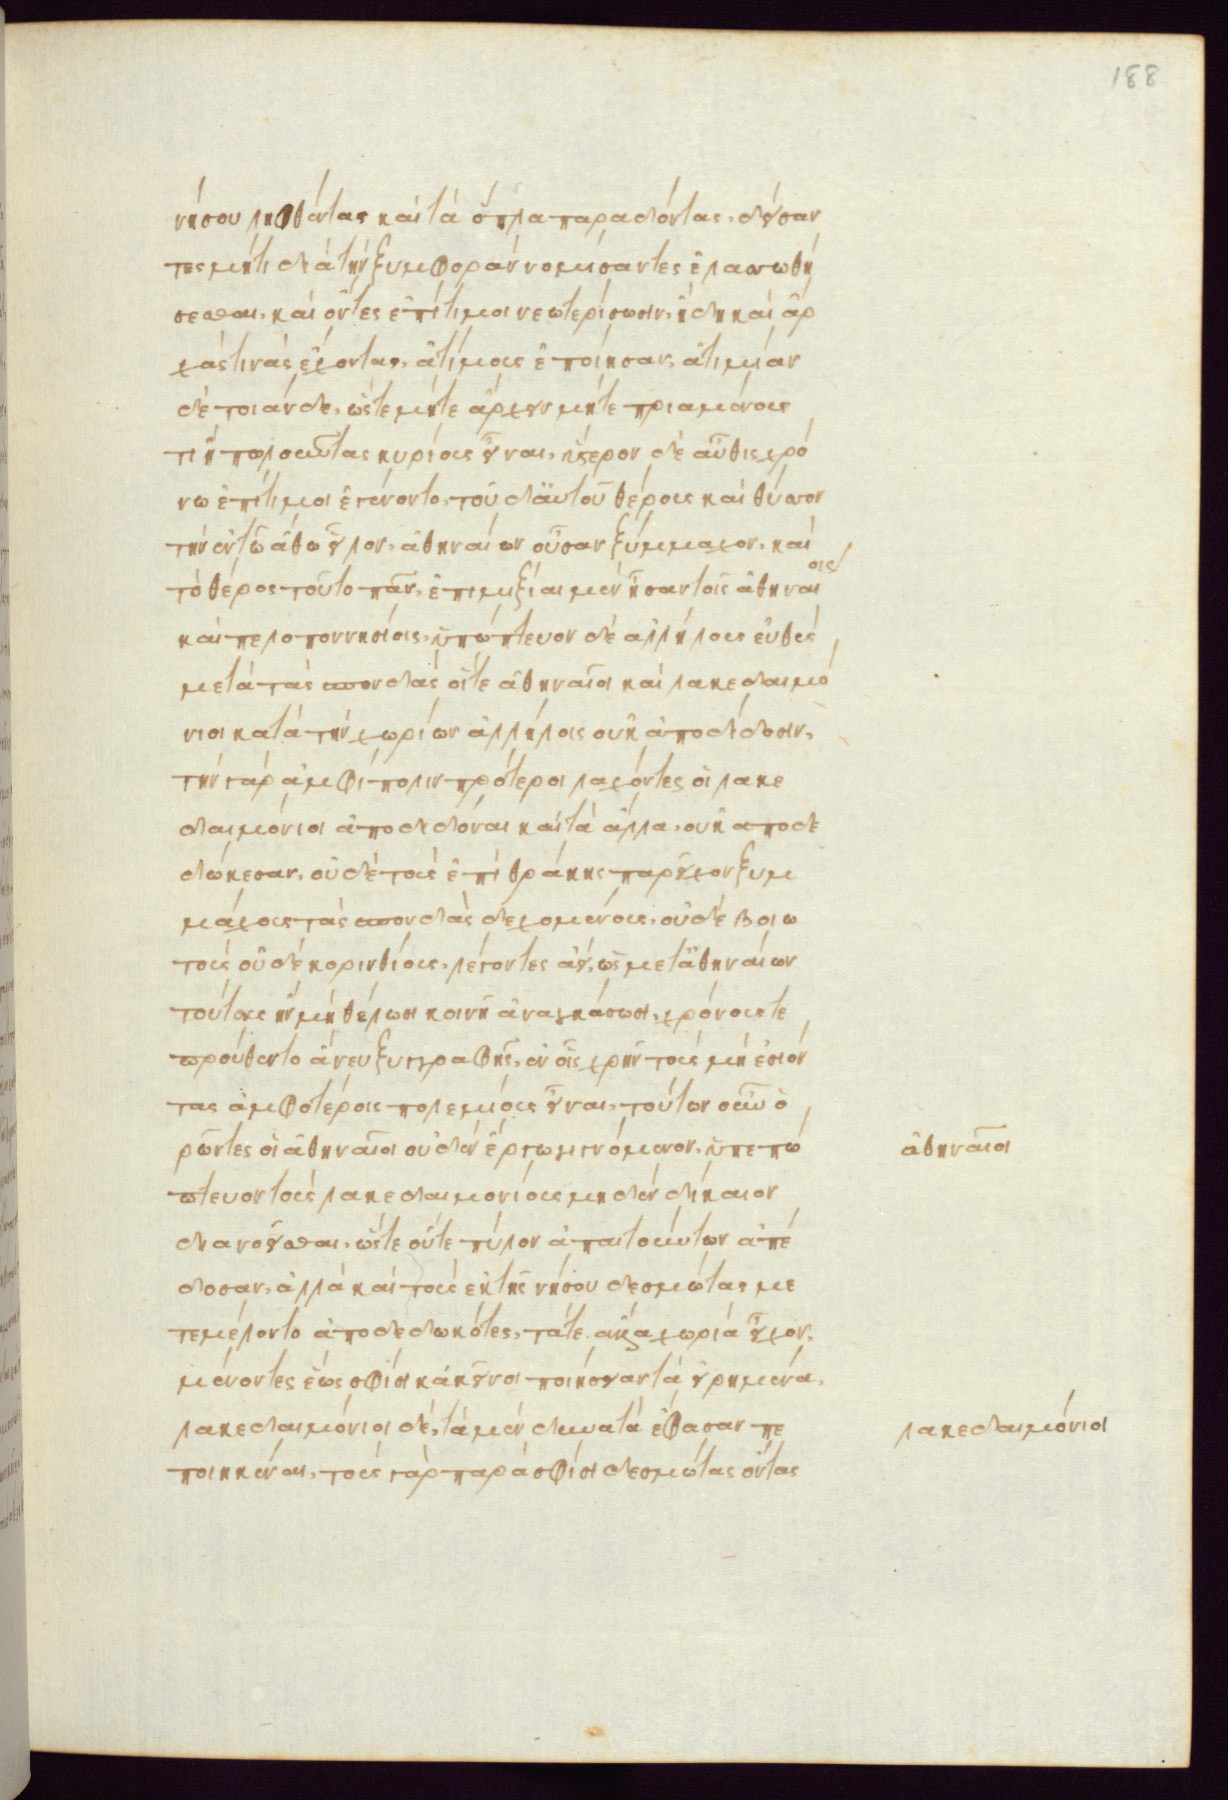 188
νήσου ληφθέντας καὶ τὰ ὅπλα παραδόντας, δείσαν
τες μή τι διὰ τὴν ξυμφορὰν νομίσαντες ἐλασσωθή
σεσθαι, καὶ ὄντες ἐπίτιμοι νεωτερίσωσιν, ἤδη καὶ ἀρ
χάς τινὰς ἔχοντας, ἀτίμους ἐποίησαν, ἀτιμίαν
δὲ τοιάνδε, ὥστε μήτε ἄρχειν μήτε πριαμένους
τι ἢ πωλοῦντας κυρίους εἶναι, ὕστερον δὲ αὖθις χρό
νω ἐπίτιμοι ἐγένοντο, τοῦ δ' αὐτοῦ θέρους καὶ θύσσον
τὴν ἐν τῶ ἄθω εἷλον, ἀθηναίων οὖσαν ξύμμαχον, καὶ
τὸ θέρος τοῦτο πᾶν, ἐπιμιξίαι μὲν ἦσαν τοῖς ἀθηναίοις
καὶ πελοποννησίοις, ὑπώπτευον δὲ ἀλλήλους εὐθὺς
μετὰ τὰς σπονδὰς οἵ τε ἀθηναῖοι καὶ λακεδαιμό
νιοι κατὰ τὴν χωρίων ἀλλήλοις οὐκ ἀπόδοσιν,
τὴν γὰρ ἀμφίπολιν πρότεροι λαχόντες οἱ λακε
δαιμόνιοι ἀποδιδόναι καὶ τὰ ἄλλα, οὐκ ἀποδε
δώκεσαν, οὐδὲ τοὺς ἐπὶ θράκης παρεῖχον ξυμ
μάχους τὰς σπονδὰς δεχομένους, οὐδὲ βοιω
τοὺς οὐδὲ κορινθίους, λέγοντες ἀεὶ, ὡς μετ' ἀθηναίων
τούτους ἢν μὴ θέλωσι κοινῆ ἀναγκάσωσι, χρόνους τε
προύθεντο ἄνευ ξυγγραφῆς, ἐν οἷς χρῆν τοὺς μὴ ἐσιόν
τας ἀμφοτέροις πολεμίους εἶναι, τούτων οὖν ὁ
ρῶντες οἱ ἀθηναῖοι οὐδὲν ἔργω γιγνόμενον, ὑπετώ
πτευον τοὺς λακεδαιμονίους μηδὲν δίκαιον
διανοεῖσθαι, ὥστε οὔτε πύλον ἀπαιτούντων ἀπέ
δοσαν, ἀλλὰ καὶ τοὺς ἐκ τῆς νήσου δεσμώτας με
τεμέλοντο ἀποδεδωκότες, τά τε ἄλλα χωρία εἶχον,
μένοντες ἕως σφίσι κἀκεῖνοι ποιήσειαν τὰ εἰρημένα,
λακεδαιμόνιοι δὲ, τὰ μὲν δυνατὰ ἔφασαν πε
ποιηκέναι, τοὺς γὰρ παρὰ σφίσι δεσμώτας ὄντας
ἀθηναῖοι
λακεδαιμόνιοι